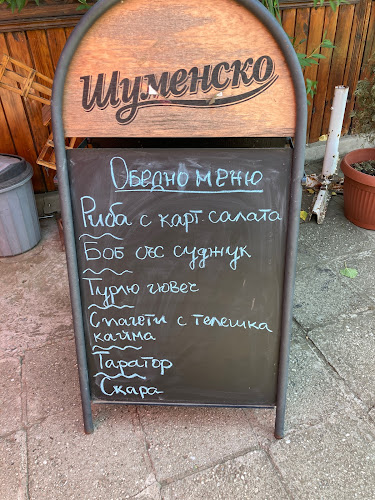 Шуменско
Обедно меню
Риба с карт. салата
Боб със суджук
Турлю гювеч
Спагети с телешка
кайма
Таратор
Скара